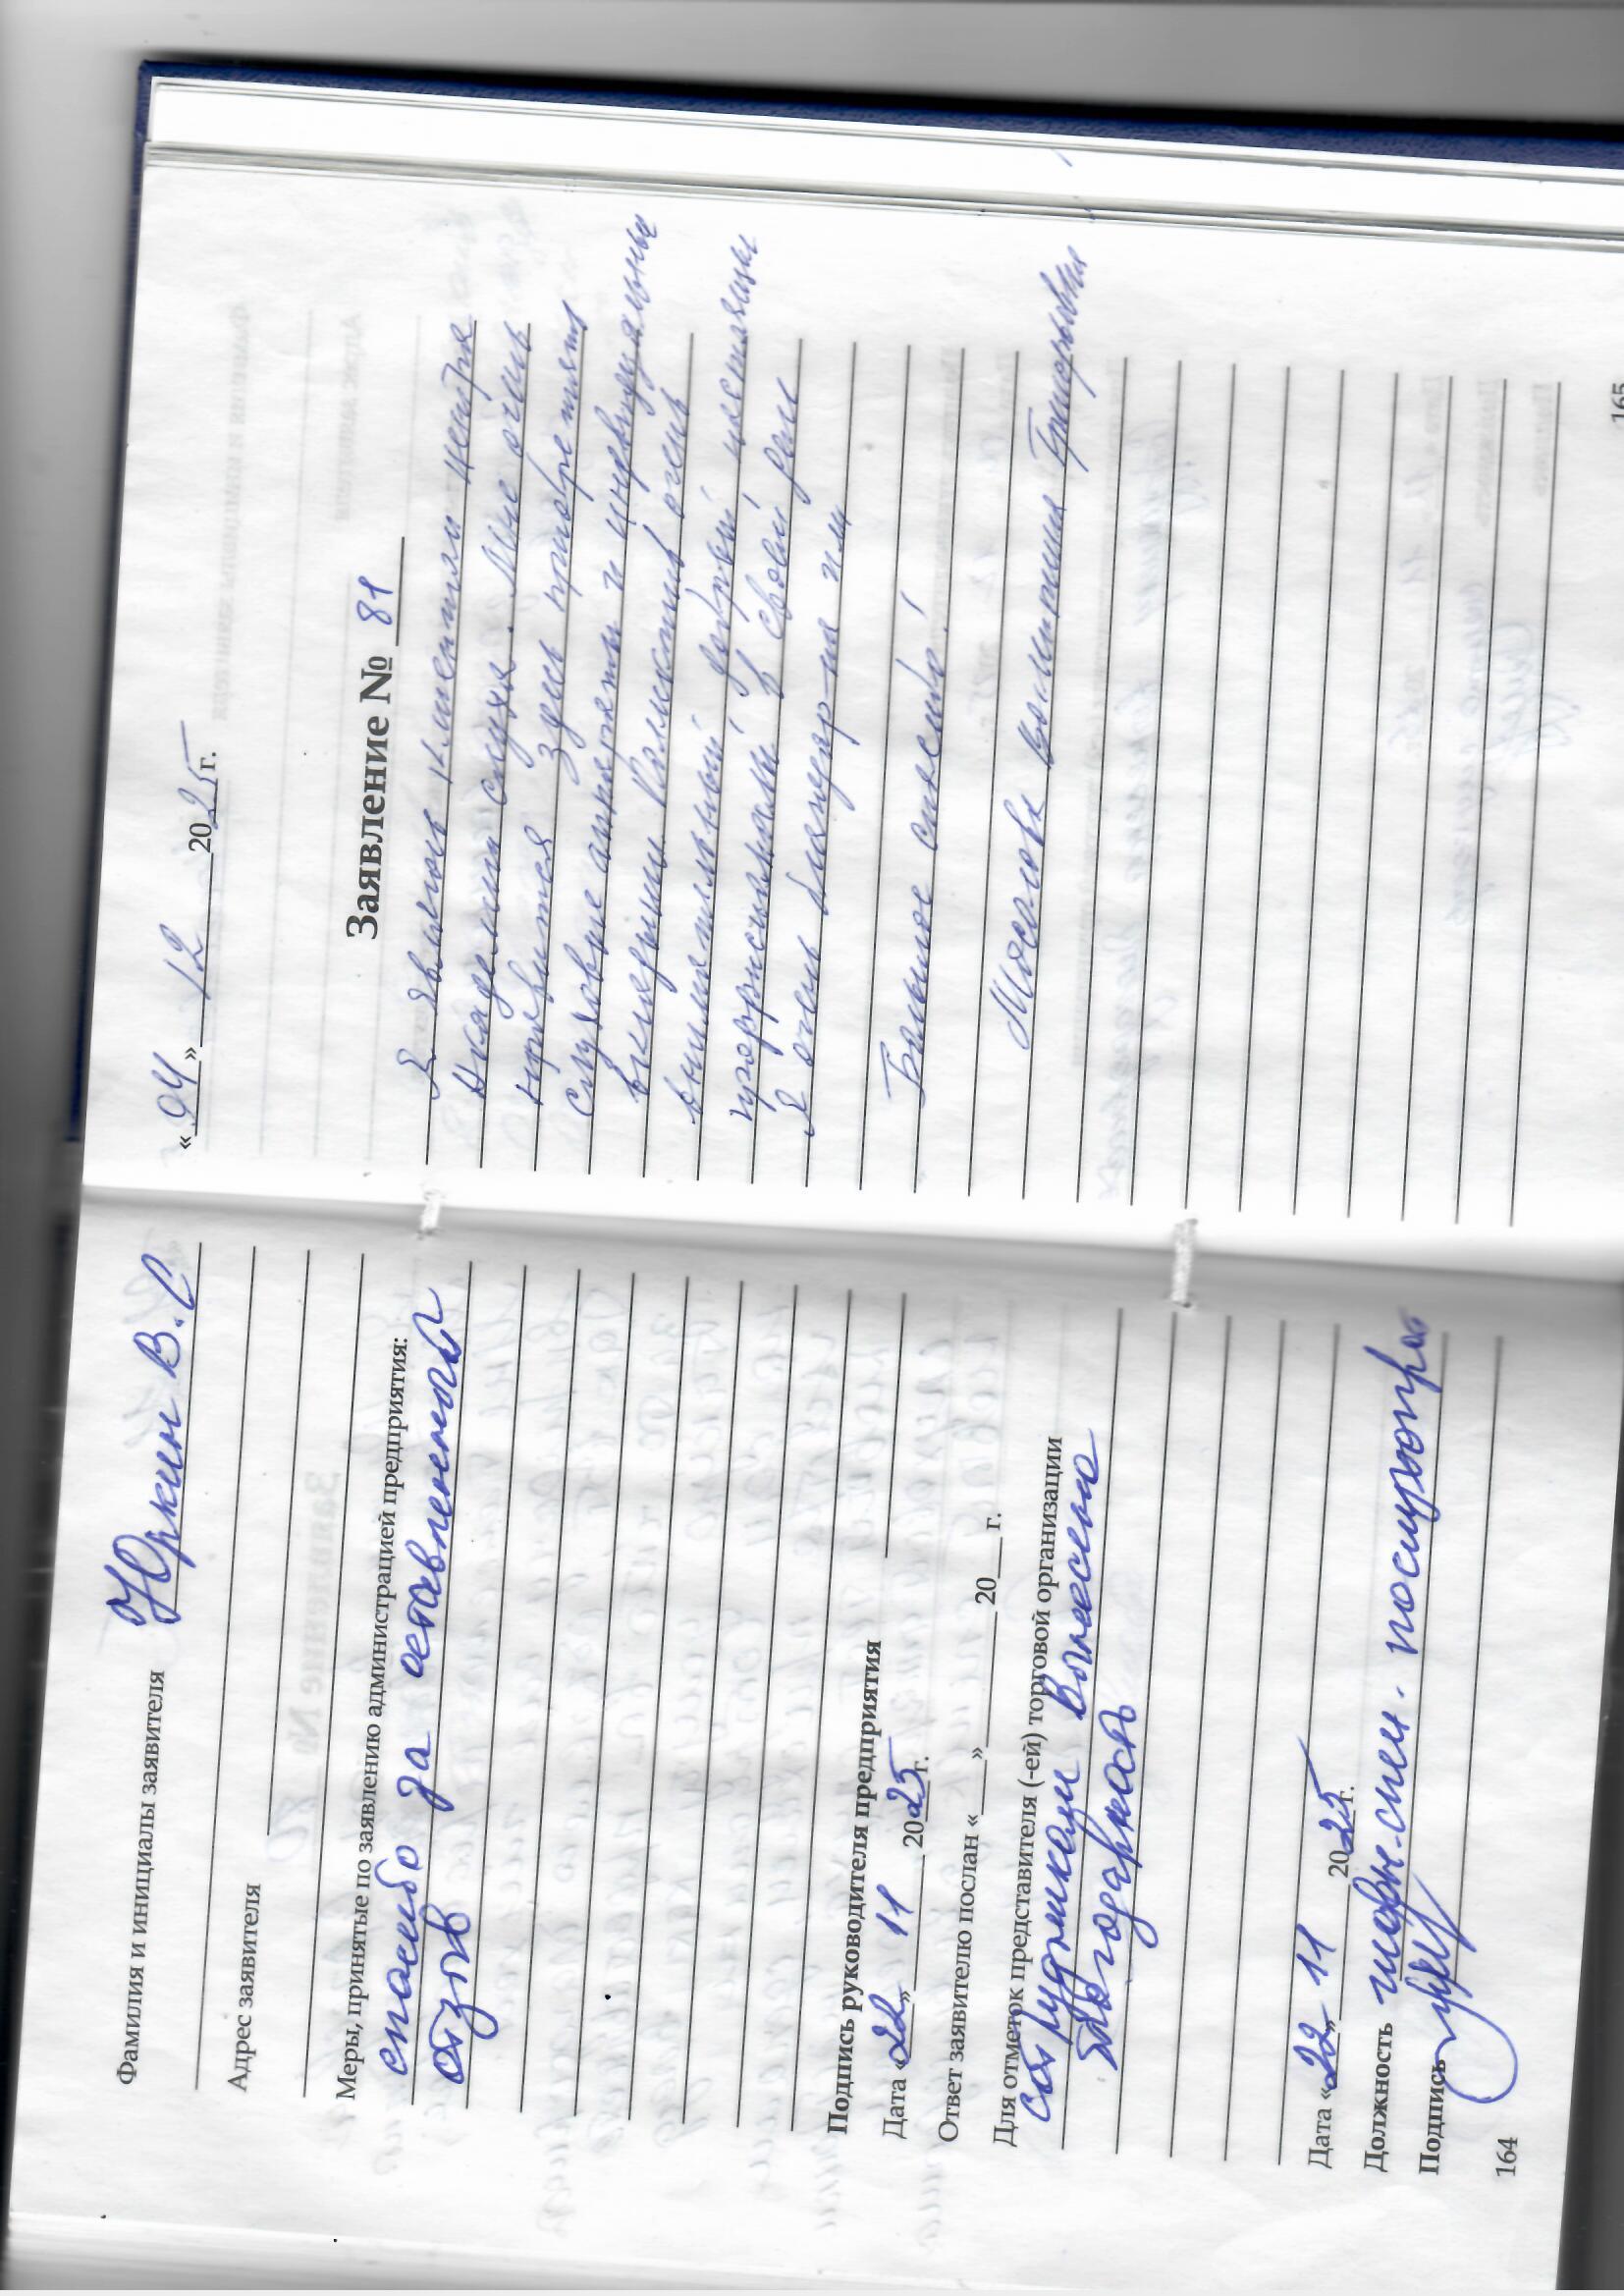 Фамилия и инициалы заявителя Юркин В.С
Адрес заявителя
Меры, принятые по заявлению администрацией предприятия:
спасибо за оставленный
отзыв
Подпись руководителя предприятия
Дата «22» 11 2025г.
Ответ заявителю послан «___» ______ 20___г.
Для отметок представителя (-ей) торговой организации
сотруднику вынесена
благодарность
Дата «22» 11 2025г.
Должность спец.
Подпись
164
«04» 12 2025г.
Заявление № 81
Я являюсь клиентом центра
Академии слуха. Мне очень
нравится здесь приобретать
слуховые аппараты и индивидуальные
вкладыши. Коллектив очень
внимательный добрый настоящие
профессионалы в своём деле
Я очень благодарна им
Большое спасибо!
Мосолова Валентина Григорьевна
165